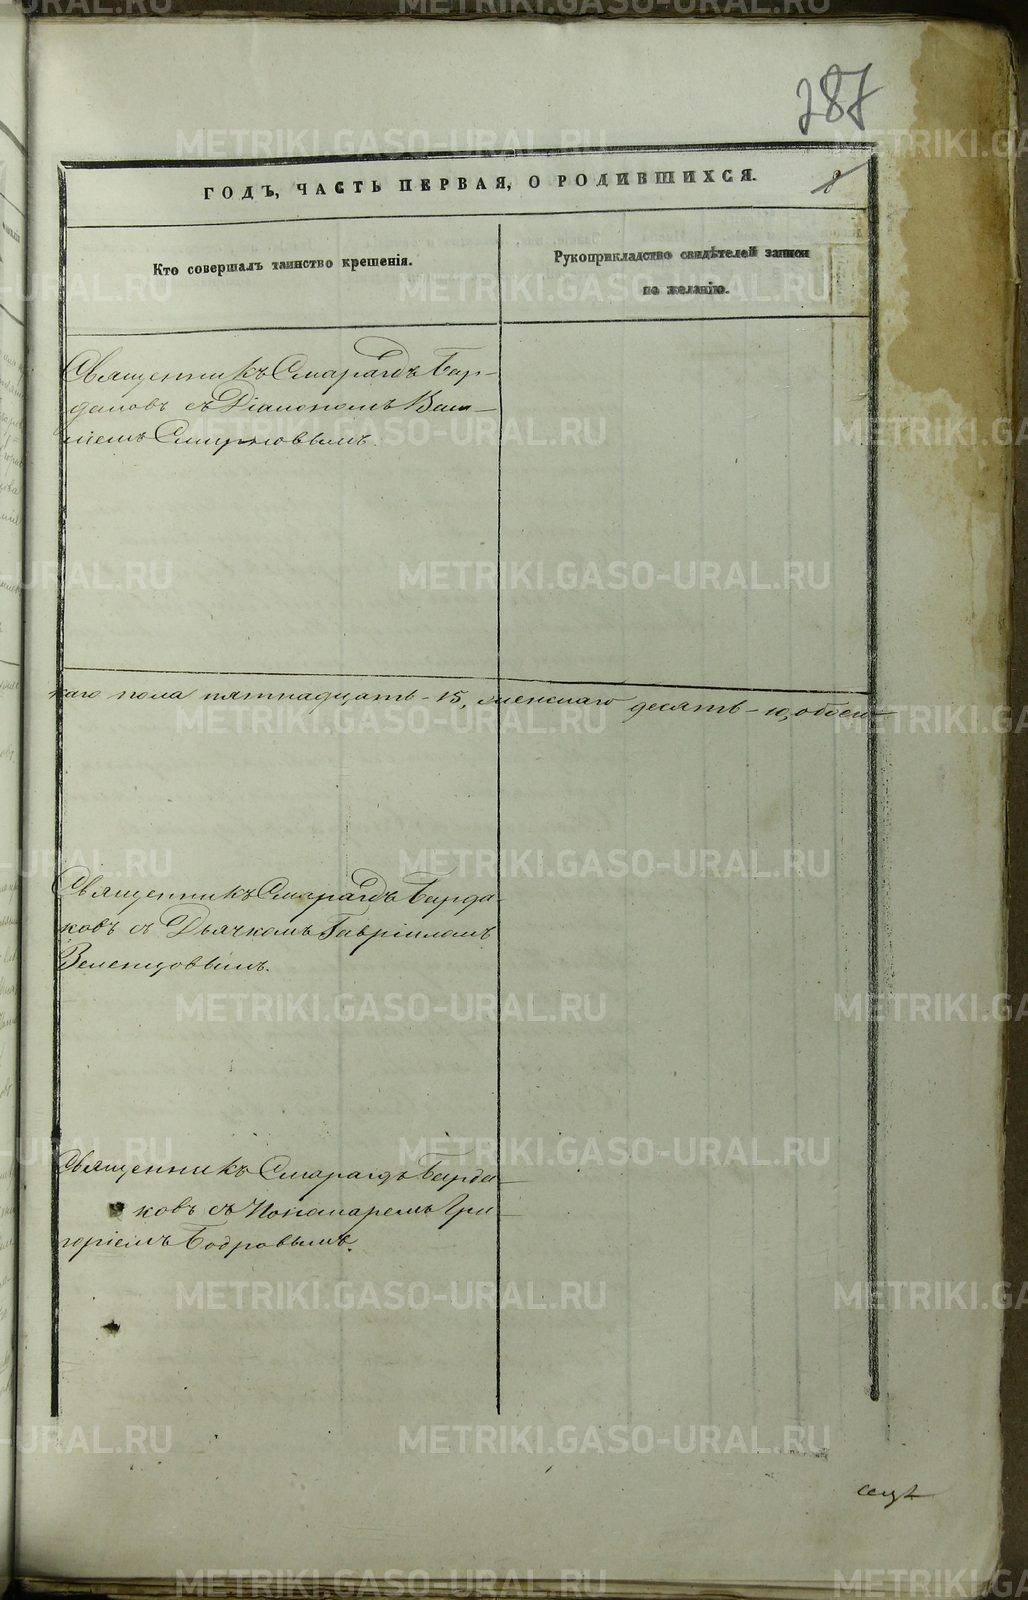 287
ГОДЪ, ЧАСТЬ ПЕРВАЯ, О РОДИВШИХСЯ.
8
Кто совершалъ таинство крещенія.
Рукоприкладство свидѣтелей записи
по желанію.
Священникъ Смарагдъ Бар-
даковъ съ Діакономъ Васи-
ліемъ Смирновымъ.
каго пола пятнадцать - 15, женскаго десять - 10, обоего
Священникъ Смарагдъ Барда
ковъ съ Дьячкомъ Гавріиломъ
Зеленцовымъ.
Священникъ Смарагдъ Барда-
ковъ съ Пономаремъ Гри-
горіемъ Бобровымъ.
METRIKI.GASO-URAL.RU